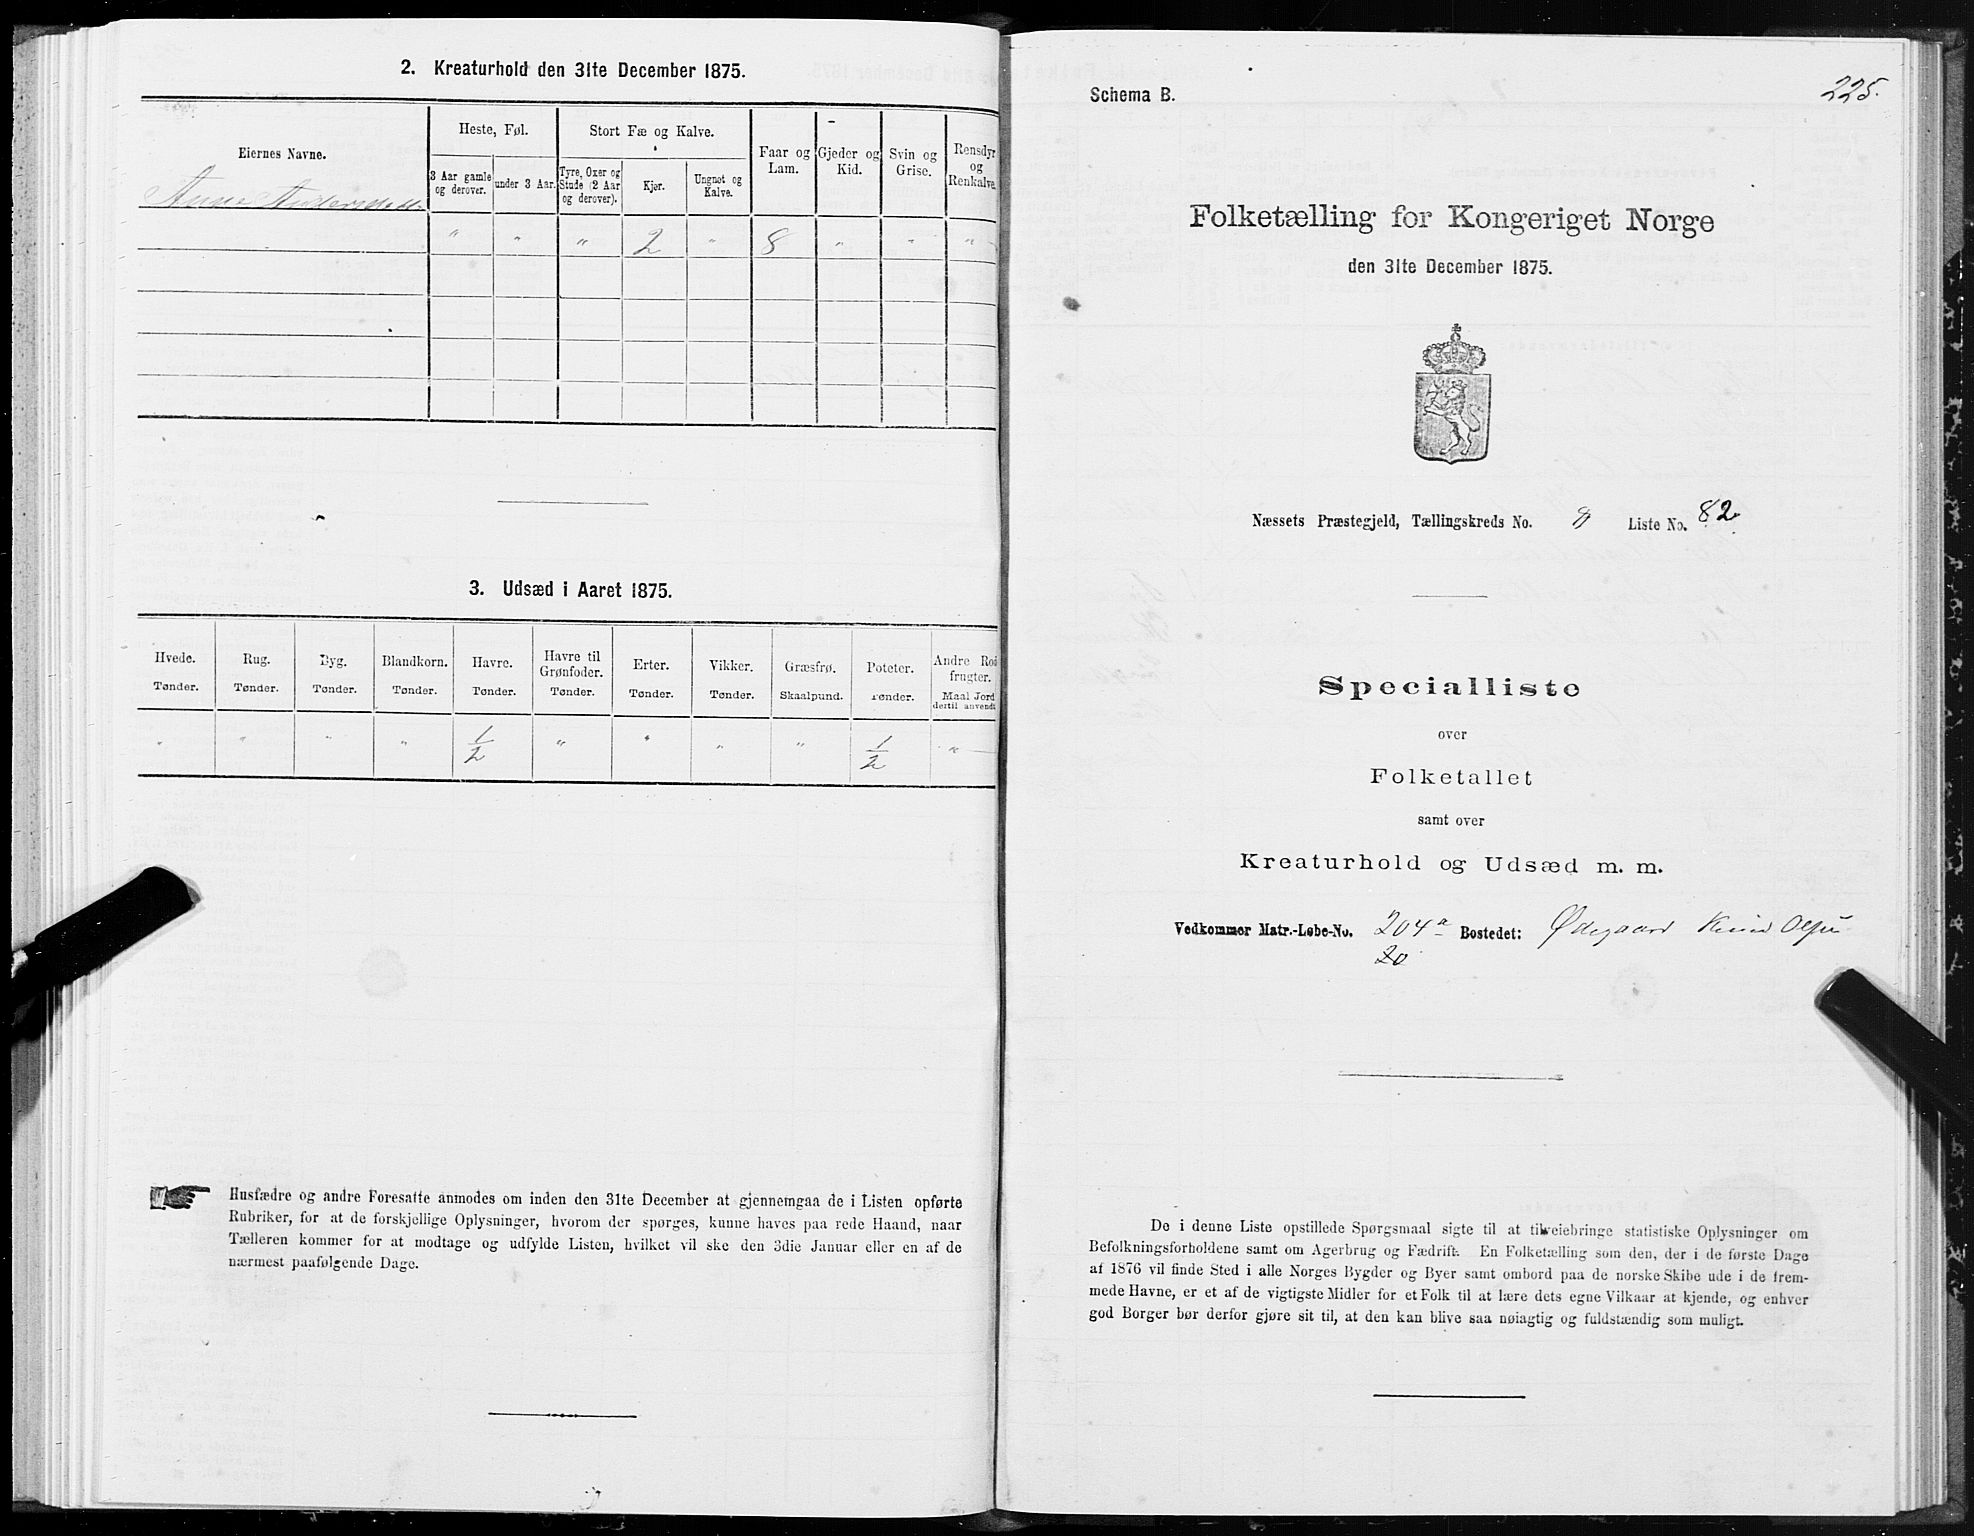 2. Kreaturhold den 31te December 1875.
Eiernes Navne.
Heste, Føl.
Stort Fæ og Kalve.
Faar og Lam.
Gjeder og Kid.
Svin og Grise.
Rensdyr og Renkalve.
3 Aar gamle og derover.
under 3 Aar.
Tyre, Oxer og Stude (2 Aar og derover).
Kjør.
Ungnøt og Kalve.
Anne Andersdatt.
" " " 2 " 8 " " "
3. Udsæd i Aaret 1875.
Hvede. Rug. Byg. Blandkorn. Havre. Havre til Grønfoder. Erter. Vikker. Græsfrø. Poteter. Andre Rodfrugter.
Tønder. Tønder. Tønder. Tønder. Tønder. Tønder. Tønder. Tønder. Skaalpund. Tønder. Maal Jord dertil anvendt
" " " " 1/2 " " " " 1/2 "
Husfædre og andre Foresatte anmodes om inden den 31te December at gjennemgaa de i Listen opførte
Rubriker, for at de forskjellige Oplysninger, hvorom der spørges, kunne haves paa rede Haand, naar
Tælleren kommer for at modtage og udfylde Listen, hvilket vil ske den 3die Januar eller en af de
nærmest paafølgende Dage.
225.
Schema B.
Folketælling for Kongeriget Norge
den 31te December 1875.
Næssets Præstegjeld, Tællingskreds No. 8 Liste No. 82
Specialliste
over
Folketallet
samt over
Kreaturhold og Udsæd m. m.
Vedkommer Matr.-Løbe-No. 204a Bostedet: Ødegaard Knud
20
De i denne Liste opstillede Spørgsmaal sigte til at tilveiebringe statistiske Oplysninger om
Befolkningsforholdene samt om Agerbrug og Fædrift. En Folketælling som den, der i de første Dage
af 1876 vil finde Sted i alle Norges Bygder og Byer samt ombord paa de norske Skibe ude i de frem-
mede Havne, er et af de vigtigste Midler for et Folk til at lære dets egne Vilkaar at kjende, og enhver
god Borger bør derfor gjøre sit til, at den kan blive saa nøiagtig og fuldstændig som muligt.